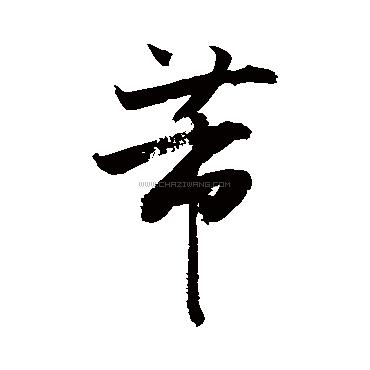 蒂
WWW.CHAZIWANG.COM